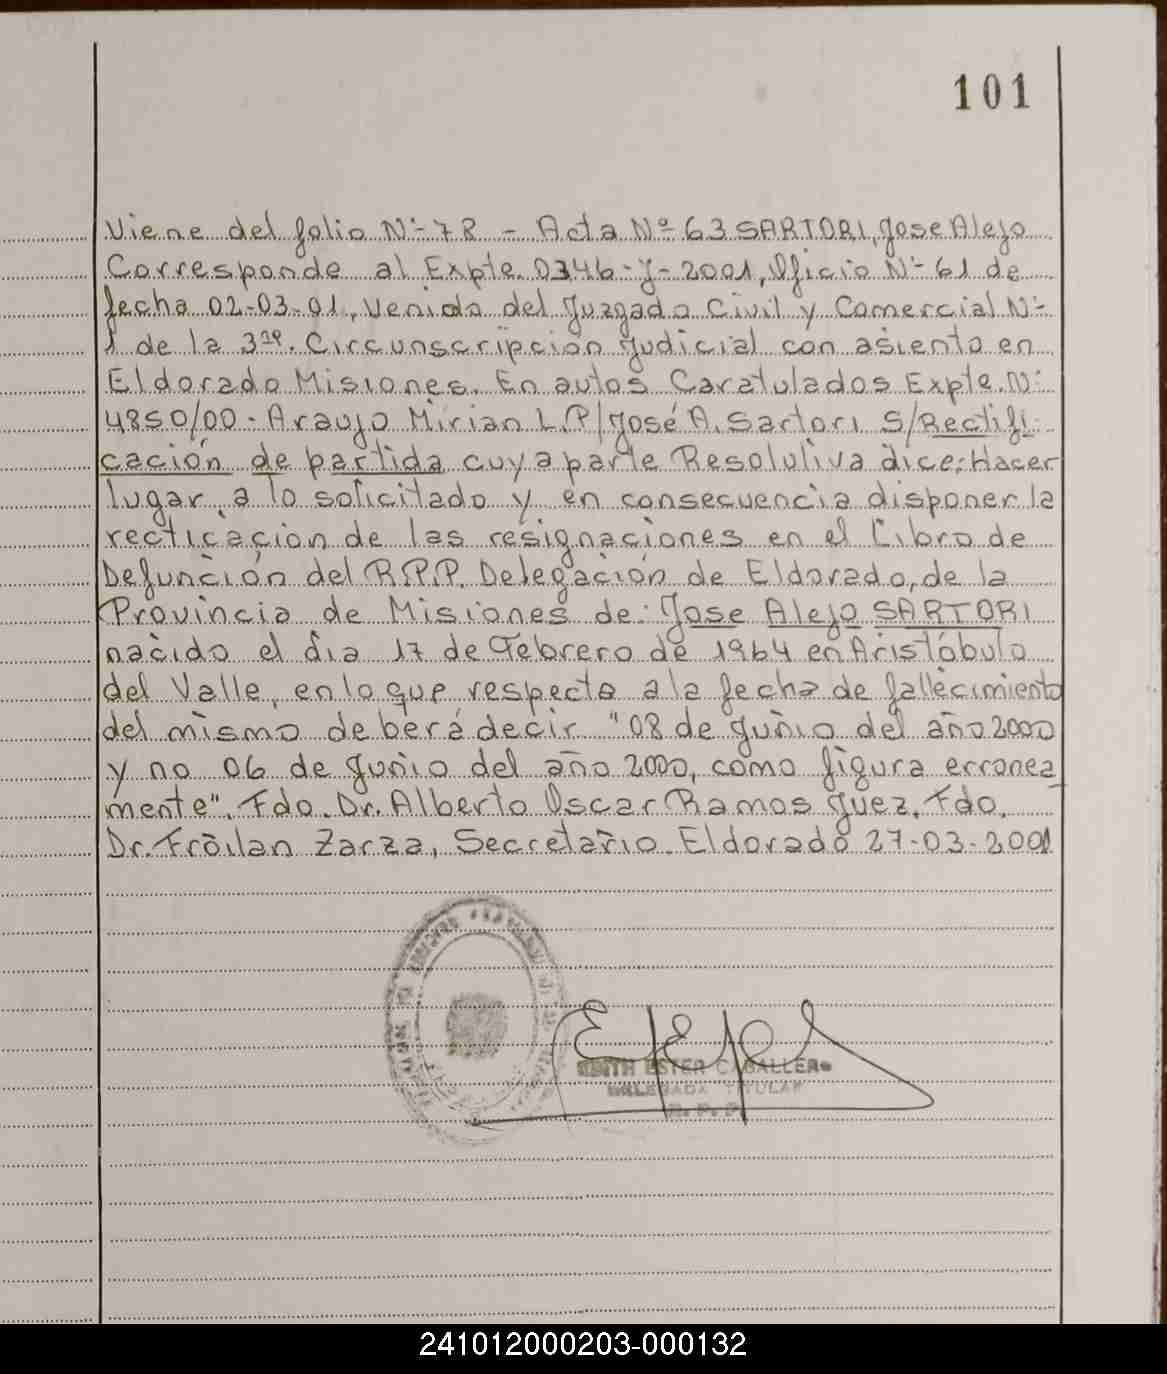 101
Viene del folio Nº 78 - Acta Nº 63 SARTORI, Jose Alejo
Corresponde al Expte. 0346-J-2001, Oficio Nº 61 de
fecha 02-03-01, Venido del Juzgado Civil y Comercial Nº
1 de la 3ra. Circunscripción Judicial con asiento en
Eldorado Misiones. En autos Caratulados Expte. Nº
4850/00 - Araujo Mirian L. P/José A. Sartori S/Rectifi
cación de partida cuya parte Resolutiva dice: Hacer
lugar a lo solicitado y en consecuencia disponer la
recticación de las resignaciones en el Libro de
Defunción del R.P.P. Delegación de Eldorado, de la
Provincia de Misiones de: Jose Alejo SARTORI
nacido el dia 17 de Febrero de 1964 en Aristóbulo
del Valle, en lo que respecta a la fecha de fallecimiento
del mismo deberá decir "08 de Junio del año 2000
y no 06 de Junio del año 2000, como figura erronea
mente". Fdo. Dr. Alberto Oscar Ramos Juez. Fdo.
Dr. Froilan Zarza, Secretario. Eldorado 27-03-2001
EDITH ESTER CABALLERO
DELEGADA TITULAR
R. P. P.
241012000203-000132